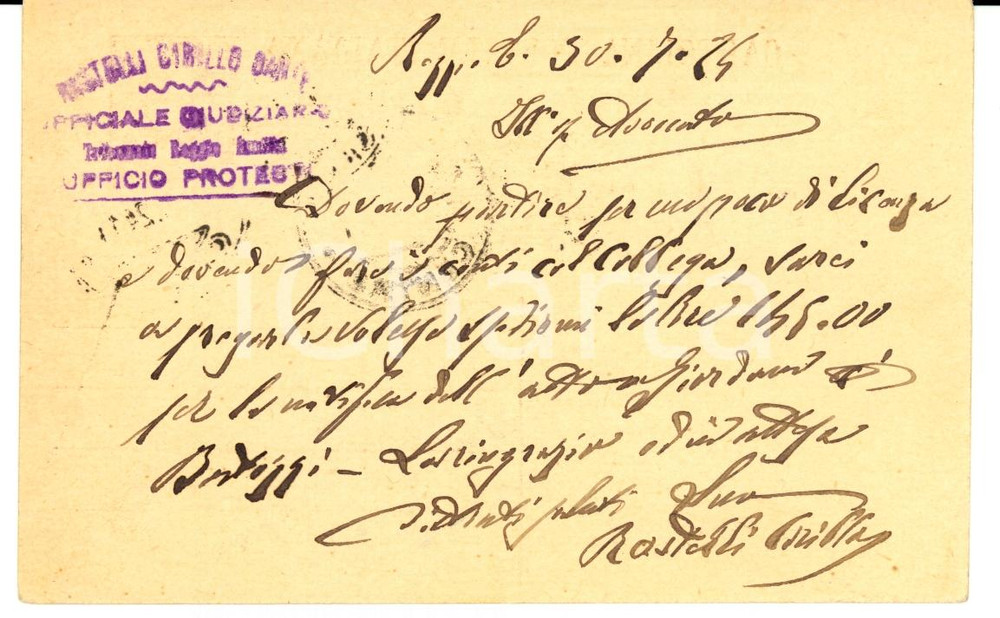 RASTELLI CIRILLO DANTE
UFFICIALE GIUDIZIARIO
Tribunale Reggio Emilia
UFFICIO PROTESTI
Regg. E. 30.7.24
Ill. Avvocato
Dovendo partire per un poco di licenza
e dovendo fare i conti col Collega, sarei
a pregarla volesse spedirmi le lire 145.00
per la notifica dell'atto Giordani
Bertozzi - La ringrazio ed in attesa
distinti saluti Suo
Rastelli Cirillo
iCharta